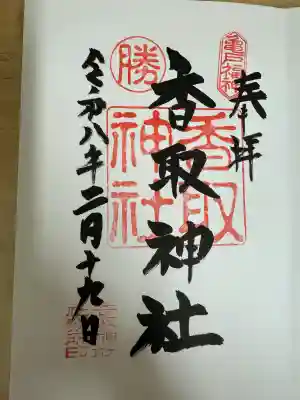 奉拝
亀戸福神
香取神社
香取
神社
勝
令和八年二月十九日